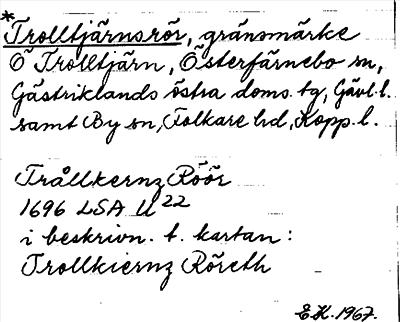 *Trolltjärnsrör, gränsmärke
Ö Trolltjärn, Österfärnebo sn,
Gästriklands östra doms. tg, Gävl. l.
samt By sn, Folkare hd, Kopp. l.
Trållkernz Röör
1696 LSA U 22
i beskrivn. t. kartan:
Trollkiernz Röreth
E.K. 1967.